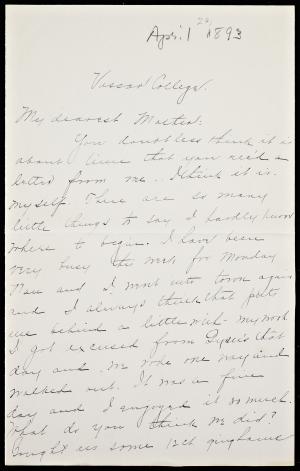 April 20, 1893
Vassar College.
My dearest Mother:
You doubtless think it is
about time that you rec'd a
letter from me. I think it is
myself. There are so many
little things to say I hardly know
where to begin. I have been
very busy this week for Monday
Nan and I went into town again
and I always think that puts
me behind a little with my work
I got excused from Lysias that
day and we rode one way and
walked out. It was a fine
day and I enjoyed it so much.
What do you think we did?
Bought us some 12ct ginghams